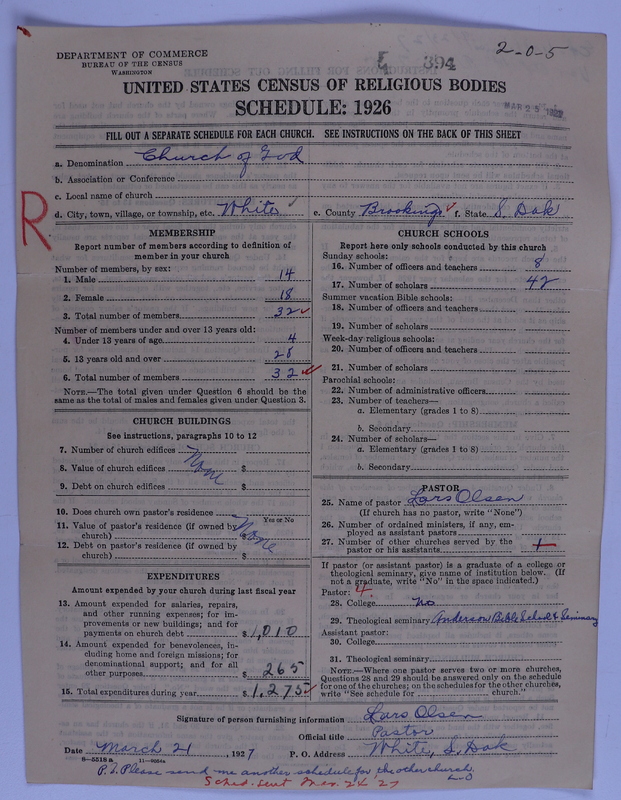 2-0-5
394
DEPARTMENT OF COMMERCE
BUREAU OF THE CENSUS
WASHINGTON
UNITED STATES CENSUS OF RELIGIOUS BODIES
SCHEDULE: 1926
MAR 25
FILL OUT A SEPARATE SCHEDULE FOR EACH CHURCH. SEE INSTRUCTIONS ON THE BACK OF THIS SHEET
a. Denomination Church of God
b. Association or Conference
c. Local name of church
d. City, town, village, or township, etc. White e. County Brookings f. State S. Dak
R
MEMBERSHIP
Report number of members according to definition of
member in your church
Number of members, by sex:
1. Male 14
2. Female 18
3. Total number of members 32
Number of members under and over 13 years old:
4. Under 13 years of age 4
5. 13 years old and over 28
6. Total number of members 32
NOTE.—The total given under Question 6 should be
same as the total of males and females given under Question 3.
CHURCH BUILDINGS
See instructions, paragraphs 10 to 12
7. Number of church edifices None
8. Value of church edifices $
9. Debt on church edifices $
10. Does church own pastor's residence
Yes or No
11. Value of pastor's residence (if owned by
church) $ None
12. Debt on pastor's residence (if owned by
church) $
EXPENDITURES
Amount expended by your church during last fiscal year
13. Amount expended for salaries, repairs,
and other running expenses; for im-
provements or new buildings; and for
payments on church debt $1,010
14. Amount expended for benevolences, in-
cluding home and foreign missions; for
denominational support; and for all
other purposes $ 265
15. Total expenditures during year $1,275
CHURCH SCHOOLS
Report here only schools conducted by this church
Sunday schools:
16. Number of officers and teachers 8
17. Number of scholars 42
Summer vacation Bible schools:
18. Number of officers and teachers
19. Number of scholars
Week-day religious schools:
20. Number of officers and teachers
21. Number of scholars
Parochial schools:
22. Number of administrative officers
23. Number of teachers—
a. Elementary (grades 1 to 8)
b. Secondary
24. Number of scholars—
a. Elementary (grades 1 to 8)
b. Secondary
PASTOR
25. Name of pastor Lars Olsen
(If church has no pastor, write "None")
26. Number of ordained ministers, if any, em-
ployed as assistant pastors
27. Number of other churches served by the
pastor or his assistants 1
If pastor (or assistant pastor) is a graduate of a college or
theological seminary, give name of institution below. (If
not a graduate, write "No" in the space indicated.)
Pastor: 4.
28. College no
29. Theological seminary Anderson Bible School & Seminary
Assistant pastor:
30. College
31. Theological seminary
NOTE.—Where one pastor serves two or more churches,
Questions 28 and 29 should be answered only on the schedule
for one of the churches; on the schedules for the other churches,
write "See schedule for church."
Signature of person furnishing information Lars Olsen
Official title Pastor
Date March 21, 1927 P. O. Address White, S. Dak
8—5518a 11—9054a
P.S. Please send me another schedule for the other church.
L-O
Sched. sent Mar. 26 27